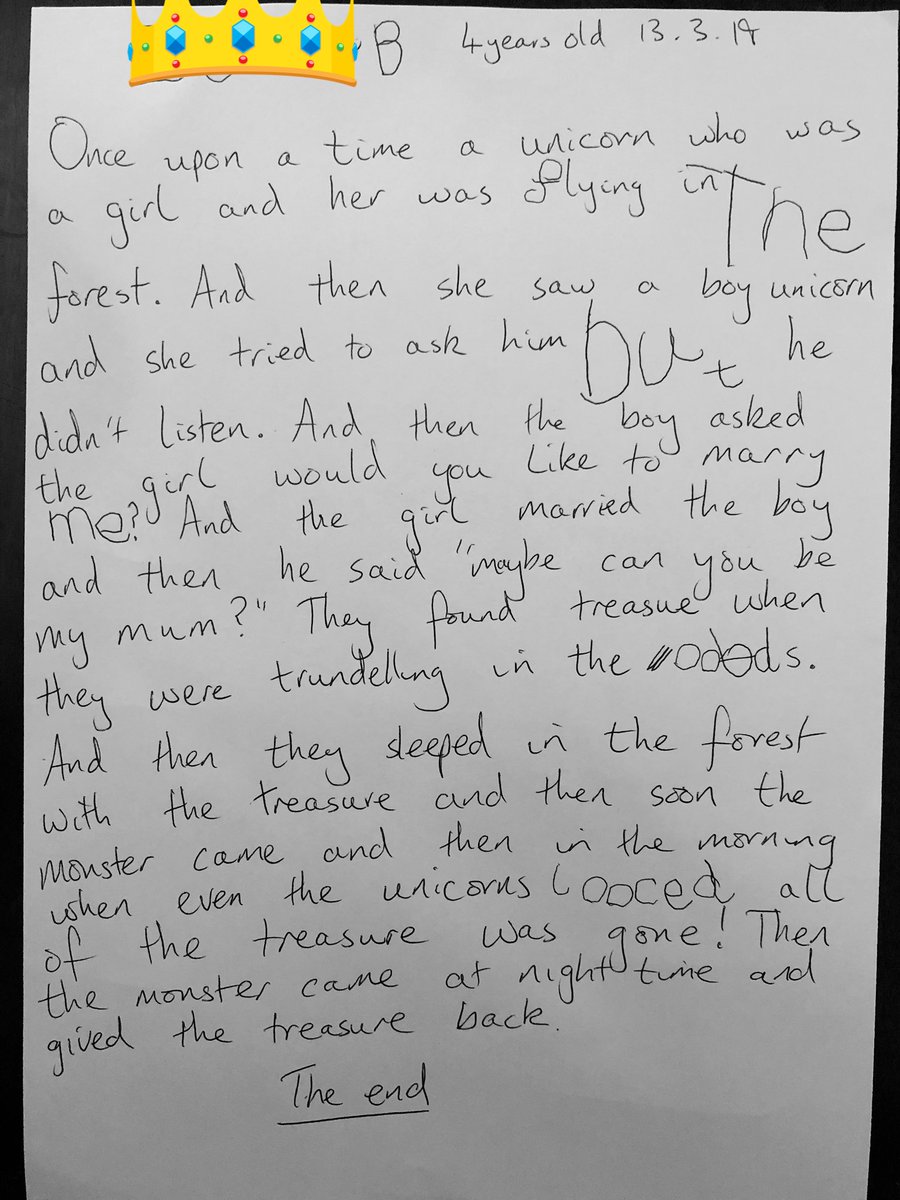 B 4 years old 13.3.19
Once upon a time a unicorn who was
a girl and her was flying in The
forest. And then she saw a boy unicorn
and she tried to ask him but he
didn't listen. And then the boy asked
the girl would you like to marry
me? And the girl married the boy
and then he said "maybe can you be
my mum?" They found treasue when
they were trundelling in the
And then they sleeped in the forest
with the treasure and then soon the
monster came and then in the morning
when even the unicorns looced all
of the treasure was gone! Then
the monster came at night time and
gived the treasure back.
The end